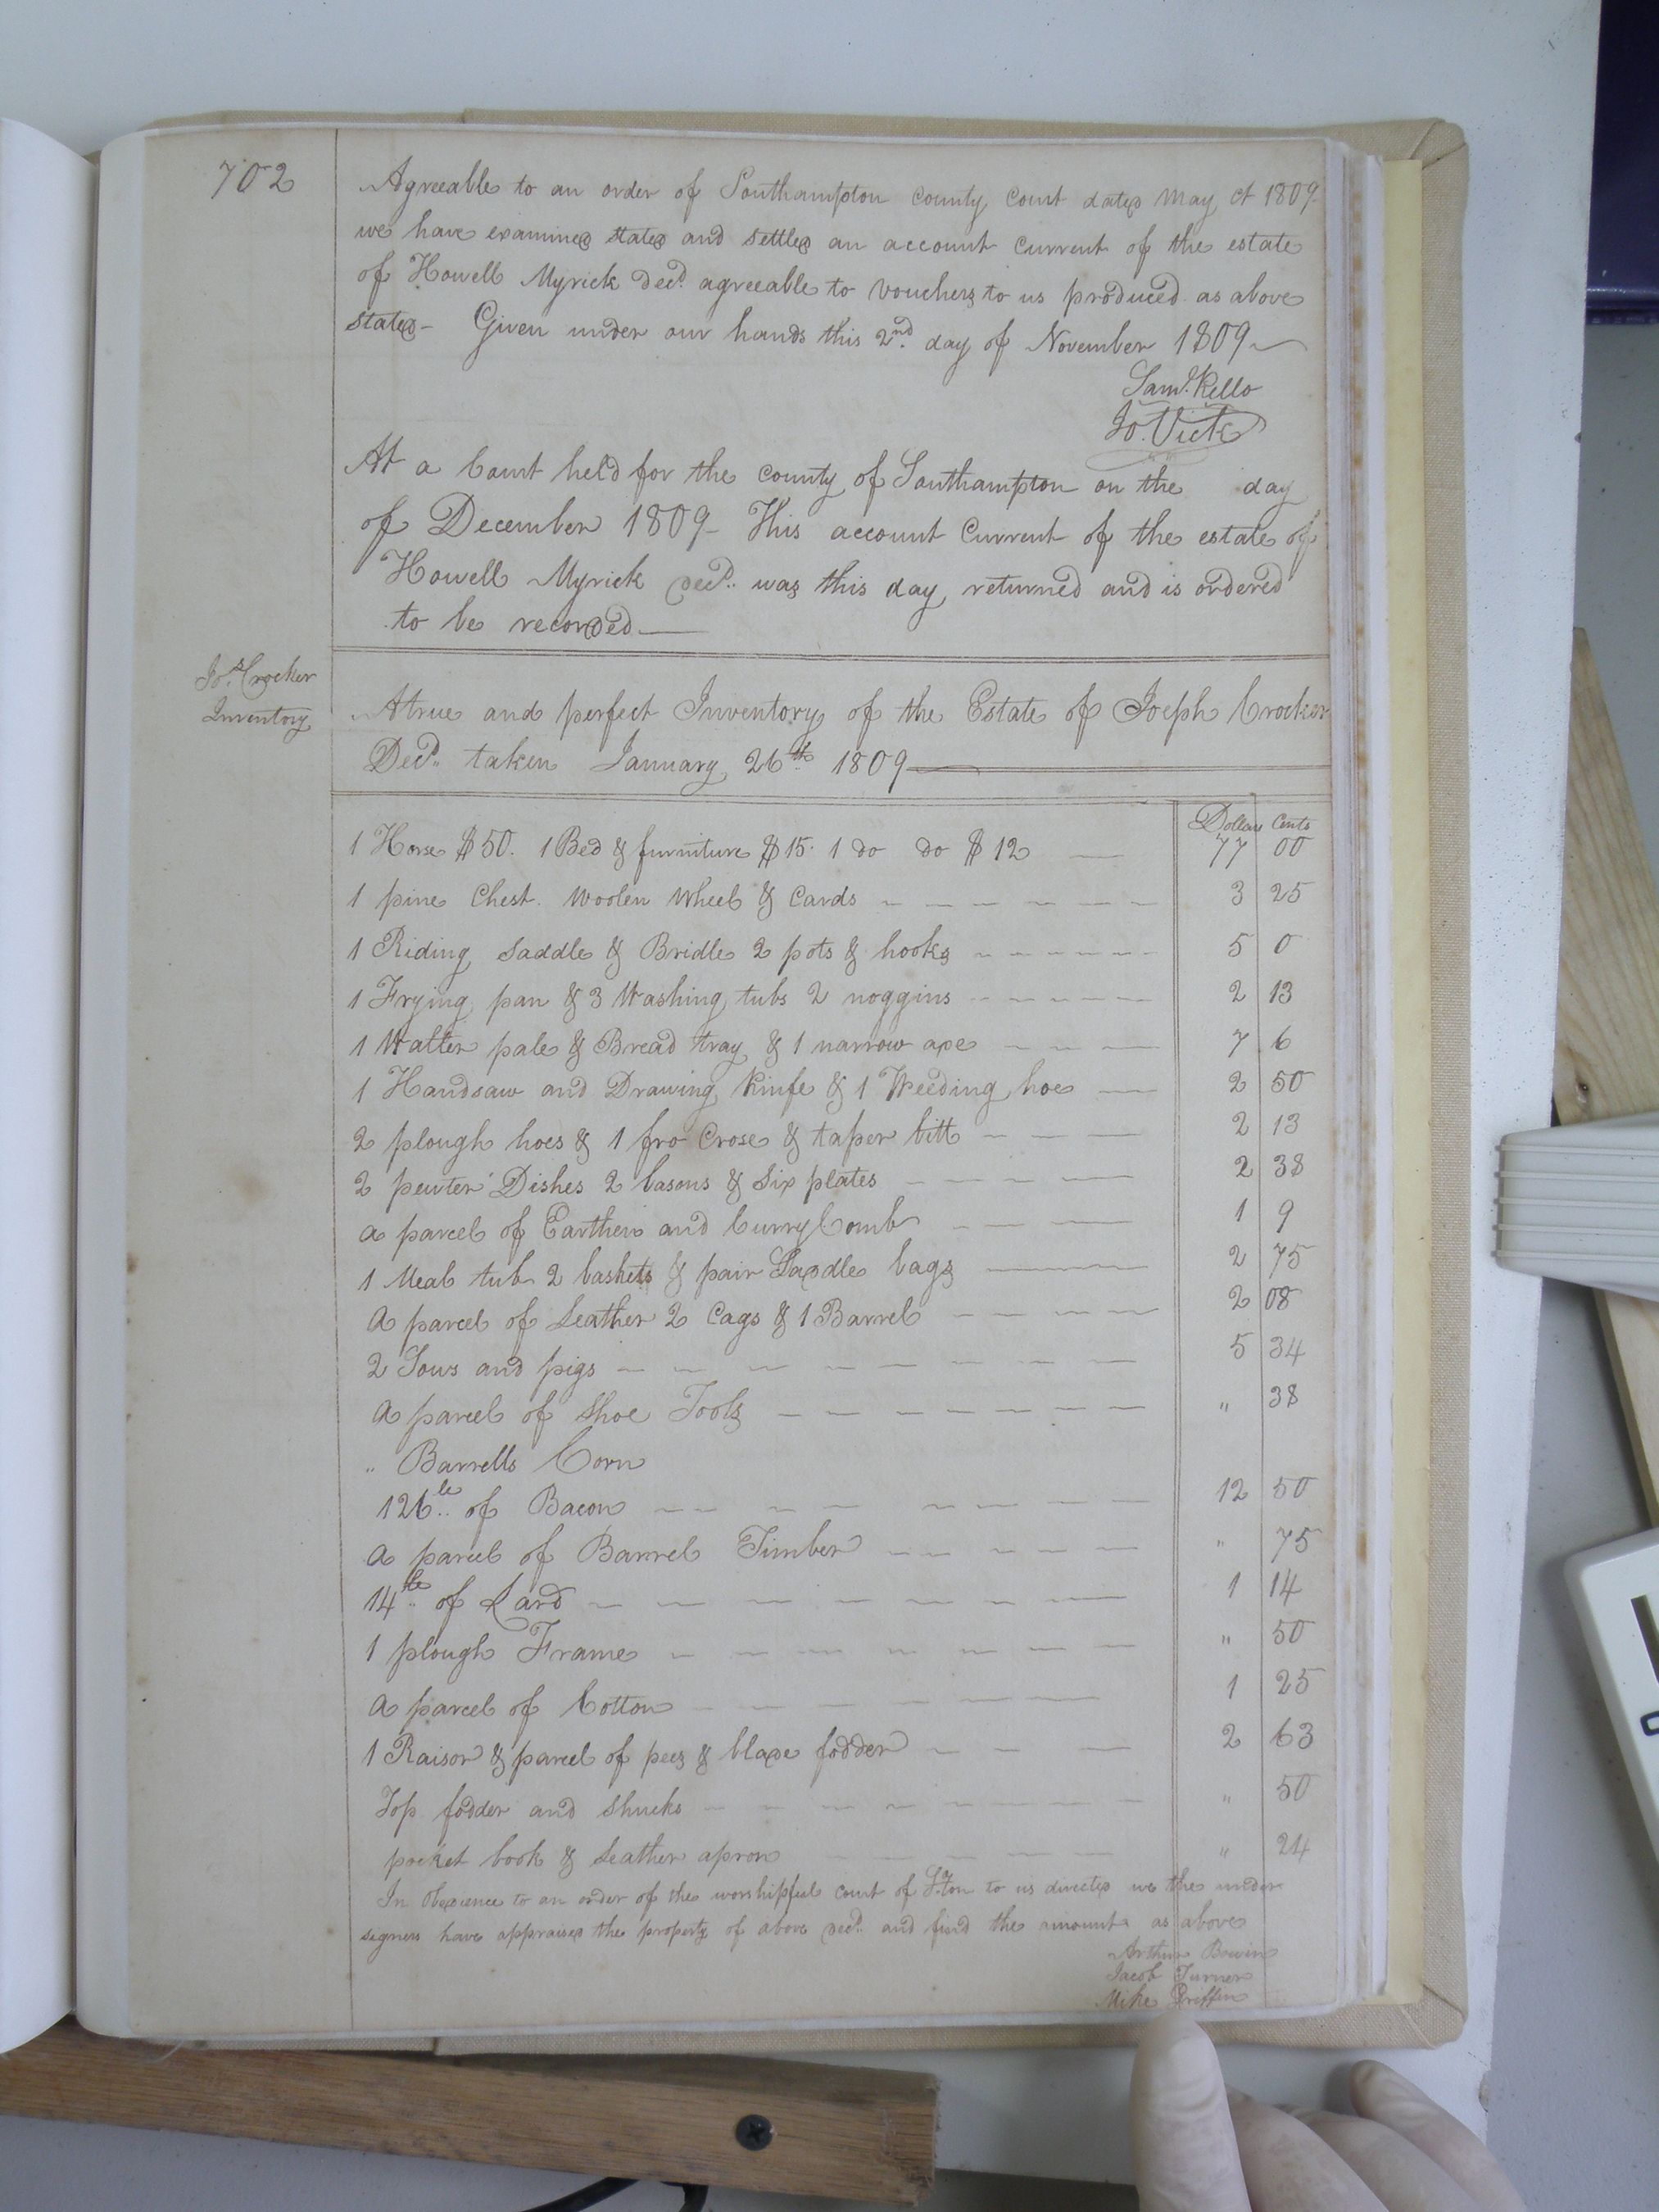 702
Agreeable to an order of Southampton County Court dated May Ct 1809-
we have examined stated and settled an account current of the estate
of Howell Myrick Decd. agreeable to vouchers to us produced as above
stated- Given under our hands this 2nd. day of November 1809
Saml. Kello
Jo. Vick
At a Court held for the county of Southampton on the day
of December 1809- This account Current of the estate of
Howell Myrick decd. was this day returned and is ordered
to be recorded
Jos. Crocker
Inventory
A true and perfect Inventory of the Estate of Joseph Crocker
Decd. taken January 26th 1809
Dollars Cents
1 Horse $50. 1 Bed & furniture $15. 1 do do $12 77 00
1 pine Chest. Woolen Wheel & Cards 3 25
1 Riding Saddle & Bridle 2 pots & hooks 5 0
1 Frying pan & 3 Washing tubs 2 noggins 2 13
1 Watter pale & Bread tray & 1 narrow axe 7 6
1 Handsaw and Drawing Kinfe & 1 Weeding hoe 2 50
2 plough hoes & 1 fro Crose & taper bitt 2 13
2 pewter Dishes 2 basons & six plates 2 38
a parcel of Earthen and Curry Comb 1 9
1 Meal tub 2 baskets & pair Saddle bags 2 75
a parcel of Leather 2 Cags & 1 Barrel 2 08
2 Sows and pigs 5 34
a parcel of Shoe Tools " 38
" Barrells Corn
126 lb of Bacon 12 50
a parcel of Barrel Timber " 75
14 lb of Lard 1 14
1 plough Frame " 50
a parcel of Cotton 1 25
1 Raisor & parcel of pees & blade fodder 2 63
Top fodder and shucks " 50
pocket book & Leather apron " 24
In Obedience to an order of the worshipful court of S.ton to us directed we the under
signers have appraised the property of above decd. and find the amount as above
Arthur Bowin
Jacob Turner
Mike Griffin